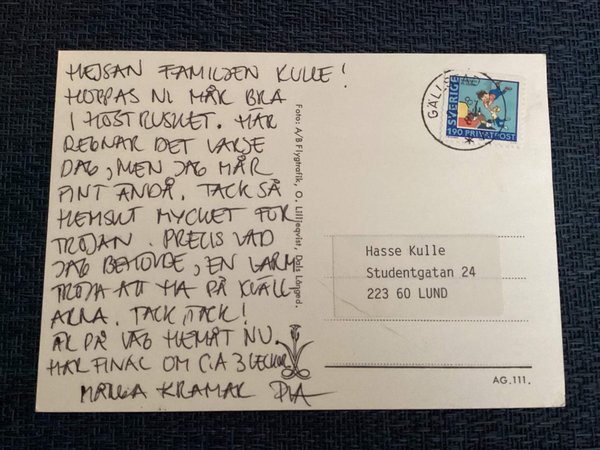 HEJSAN FAMILJEN KULLE!
HOPPAS NI MÅR BRA
I HÖSTRUSKET. HÄR
REGNAR DET VARJE
DAG, MEN JAG MÅR
FINT ÄNDÅ. TACK SÅ
HEMSKT MYCKET FÖR
TRÖJAN. PRECIS VAD
JAG BEHÖVDE, EN VARM
TRÖJA ATT HA PÅ KVÄLL-
ARNA. TACK, TACK!
ÄR PÅ VÄG HEMÅT NU.
HAR FINAL OM CA 3 VECKOR
MÅNGA KRAMAR PIA
Foto: A/B Flygtrafik, O. Lilljeqvist, Dals Långed.
SVERIGE
190 PRIVATPOST
Hasse Kulle
Studentgatan 24
223 60 LUND
AG.111.